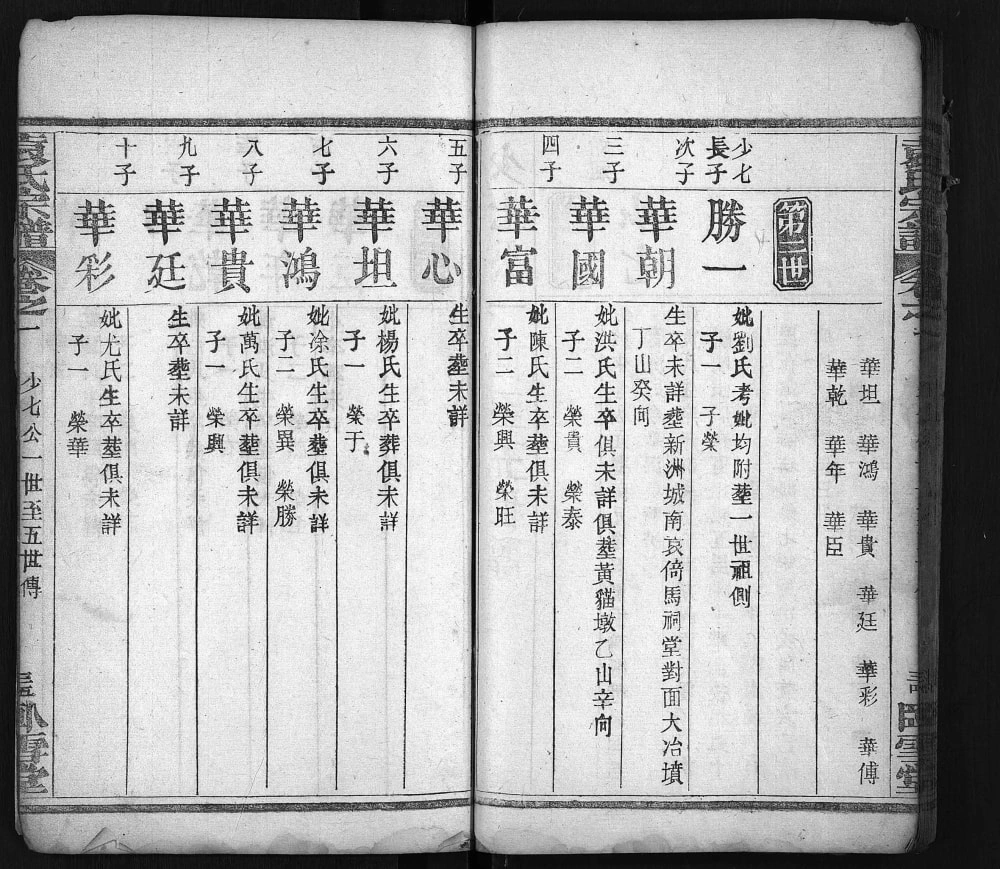 華坦 華鴻 華貴 華廷 華彩 華傅
華乾 華年 華臣
第二世
少七
長子
勝一
妣劉氏考妣均附塟一世祖側
子一 子榮
次子
華朝
生卒未詳塟新洲城南哀倚馬祠堂對面大冶墳
丁山癸向
三子
華國
妣洪氏生卒俱未詳俱塟黃貓墩乙山辛向
子二 榮貴 榮泰
四子
華富
妣陳氏生卒塟俱未詳
子二 榮興 榮旺
五子
華心
生卒塟未詳
六子
華坦
妣楊氏生卒葬俱未詳
子一 榮于
七子
華鴻
妣涂氏生卒塟俱未詳
子二 榮異 榮勝
八子
華貴
妣萬氏生卒塟俱未詳
子一 榮興
九子
華廷
生卒塟未詳
十子
華彩
妣尤氏生卒塟俱未詳
子一 榮華
袁氏宗譜 卷之一 少七公一世至五世傳 臥雪堂